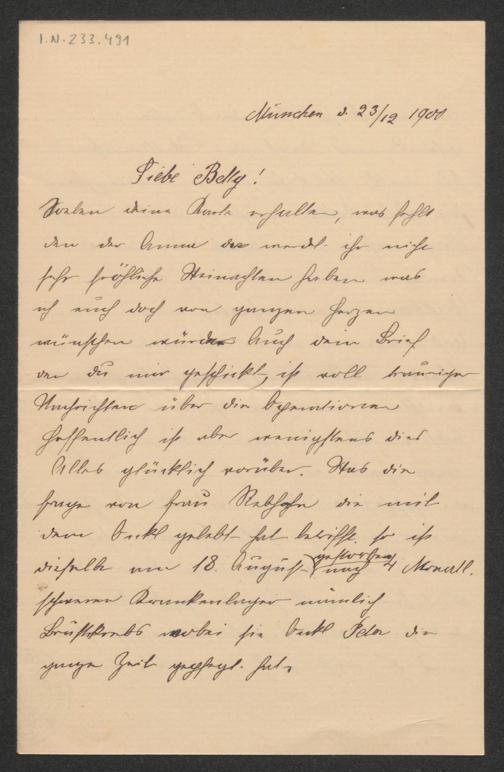 I.N. 233.491
München d. 23/12 1900
Liebe Betty!
Soeben deine Karte erhalten, was fehlt
den der Anna da werdet ihr nicht
sehr fröhliche Weinachten haben was
ich euch doch von ganzen Herzen
wünschen würde Auch dein Brief
den du mir geschickt, ist voll trauriger
Nachrichten über die Operationen
hoffentlich ist aber wenigstens dies
Alles glücklich vorüber. Was die
frage von Frau Rebhahn die mit
dem Onkl gelebt hat betrifft. so ist
dieselbe am 18. August nach 4 Monatl.
gestorben
schweren Krankenlager nämlich
Brustkrebs wobei sie Onkl Peter die
ganze Zeit gepflegt hat.